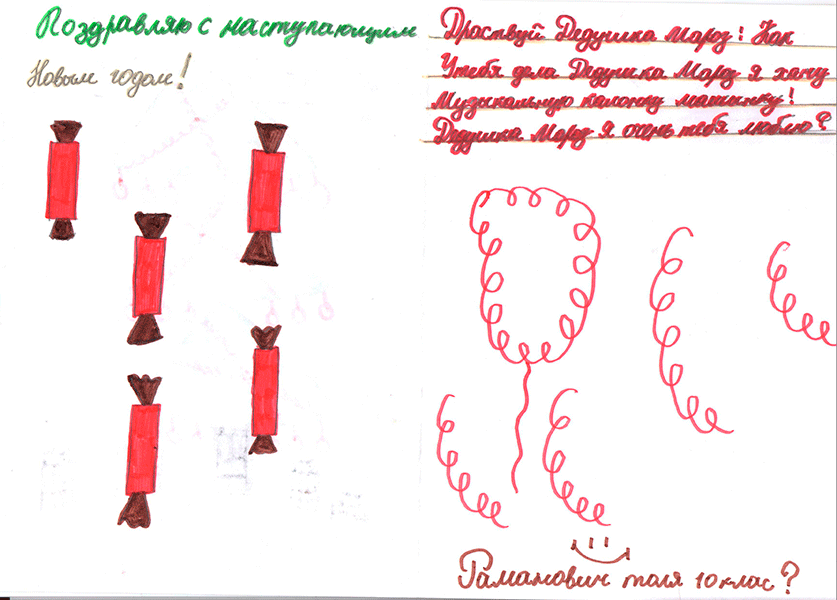 Поздравляю с наступающим
Новым годом!
Драствуй Дедушка Мароз! Как
Утебя дела Дедушка Мароз я хачу
Музыкальную калонку машынку!
Дедушка Мароз Я очень тебя люблю?
Рамамович толя 10 клас?